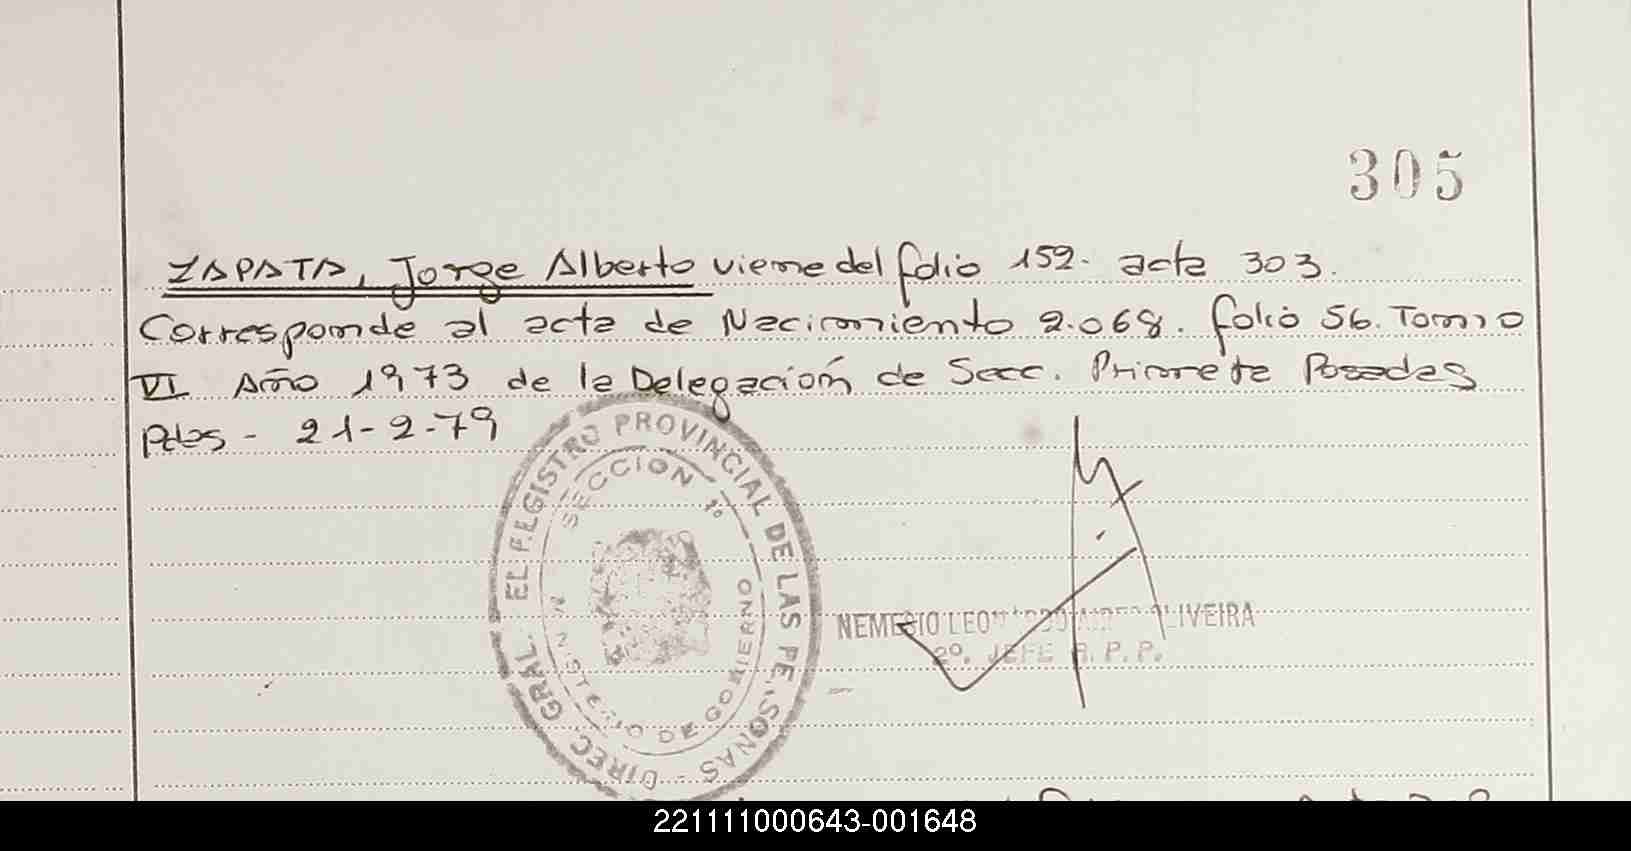 305
ZAPATA, Jorge Alberto viene del folio 152. acta 303.
Corresponde al acta de Nacimiento 2.068. folio 56. Tomo
VI Año 1973 de la Delegación de Secc. Primera Posadas
Pdas - 21-2-79
DIREC. GRAL. EL REGISTRO PROVINCIAL DE LAS PE.SONAS -
SECCION 1º
MINISTERIO DE GOBIERNO
NEMESIO OLIVEIRA
2º. JEFE R.P.P.
221111000643-001648